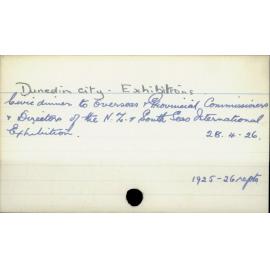 Dunedin city - Exhibitions
Civic dinner to Overseas & Provincial Commissioners
& Directors of the N.Z. & South Seas International
Exhibition. 28.4.26.
1925-26 repts